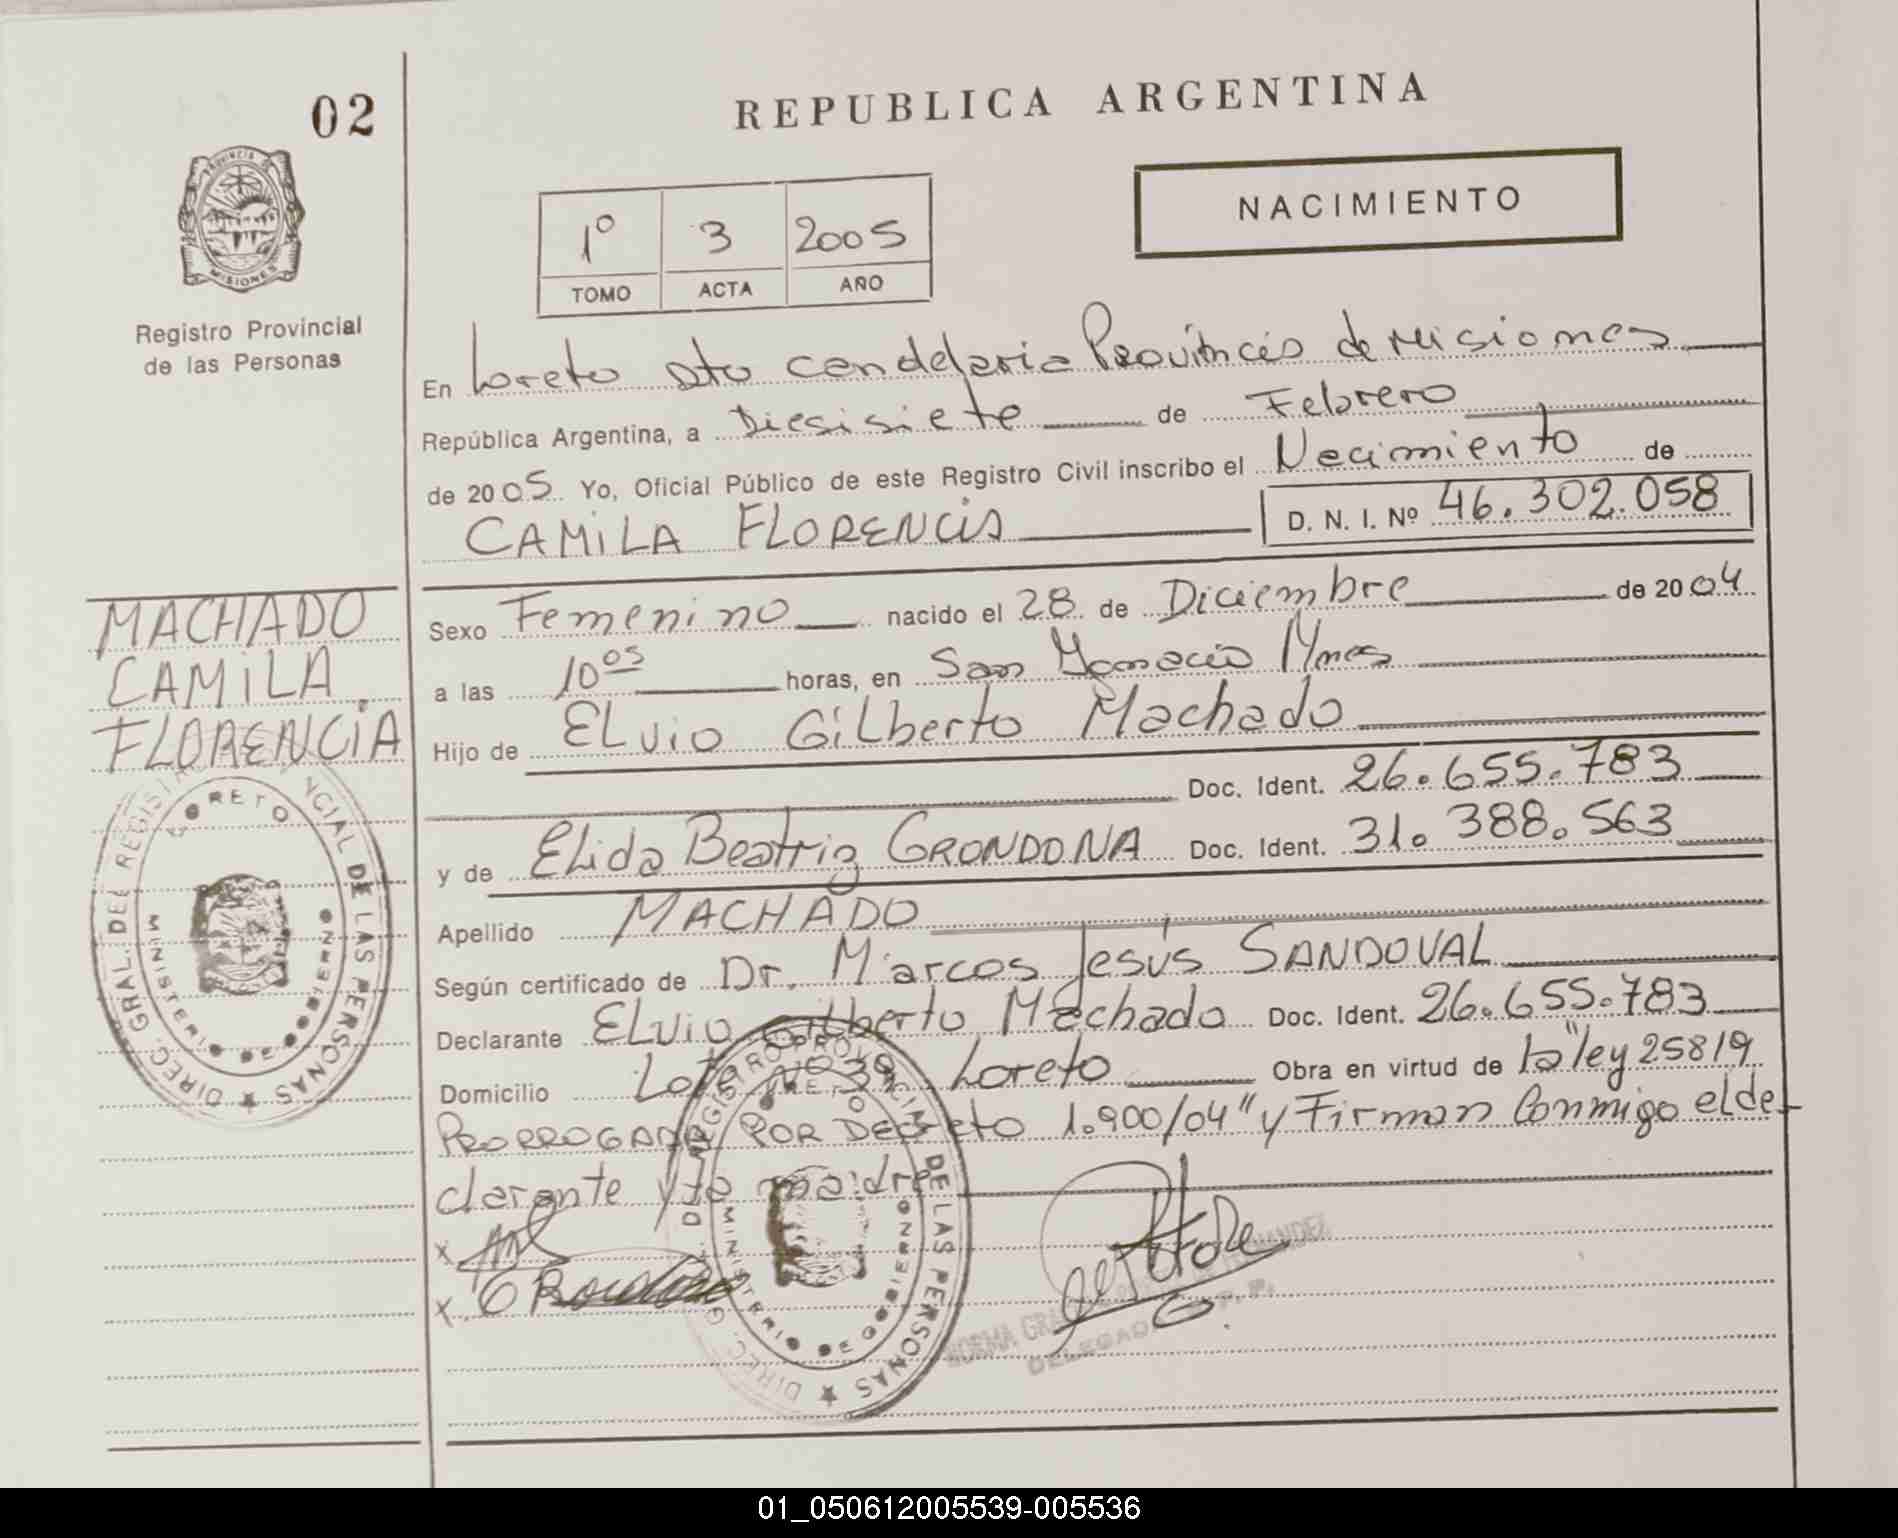 02
REPUBLICA ARGENTINA
PROVINCIA DE
MISIONES
Registro Provincial
de las Personas
NACIMIENTO
1º 3 2005
TOMO ACTA AÑO
En Loreto Dto Candelaria Provincia de Misiones
República Argentina, a Diesisiete de Febrero
de 2005. Yo, Oficial Público de este Registro Civil inscribo el Nacimiento de
CAMILA FLORENCIA D. N. I. Nº 46.302.058
MACHADO
CAMILA
FLORENCIA
Sexo Femenino nacido el 28 de Diciembre de 2004
a las 10 05 horas, en San Ygnacio Mnes
Hijo de ELvio GiLberto Machado
Doc. Ident. 26.655.783
y de ELida Beatriz GRONDONA Doc. Ident. 31.388.563
Apellido MACHADO
Según certificado de Dr. Marcos Jesús SANDOVAL
Declarante ELvio Gilberto Machado Doc. Ident. 26.655.783
Domicilio Lote Nº 39 Loreto Obra en virtud de la "ley 25819
PRORROGADA POR DECreto 1.900/04" y Firman Conmigo el de-
clarante y la madre
x
x
DIREC. GRAL. DEL REGISTRO PROVINCIAL DE LAS PERSONAS
LORETO
MINISTERIO DE GOBIERNO
DIREC. G DEL REGISTRO PROVINCIAL DE LAS PERSONAS
MINISTERIO DE GOBIERNO
NORMA
DELEGADA
01_050612005539-005536